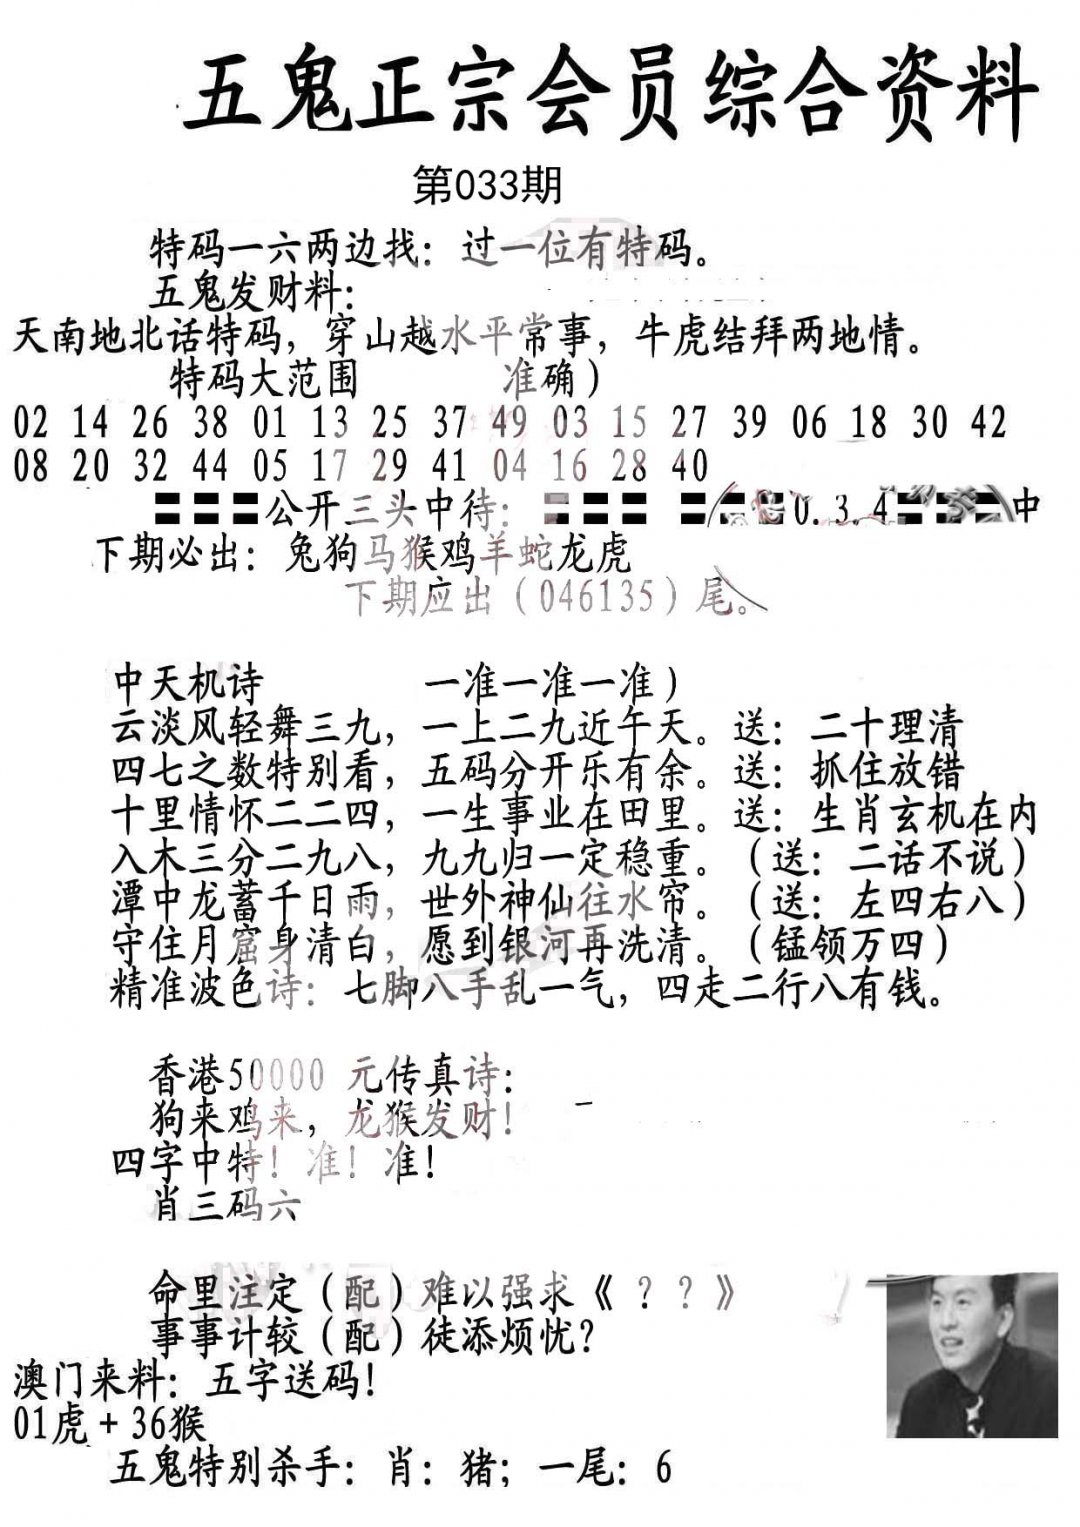 五鬼正宗会员综合资料
第033期
特码一六两边找：过一位有特码。
五鬼发财料：
天南地北话特码，穿山越水平常事，牛虎结拜两地情。
特码大范围 准确）
02 14 26 38 01 13 25 37 49 03 15 27 39 06 18 30 42
08 20 32 44 05 17 29 41 04 16 28 40
☰☰☰公开三头中待：☰☰☰ ☰☰☰0.3.4☰☰☰中
下期必出：兔狗马猴鸡羊蛇龙虎
下期应出（046135）尾。
中天机诗 一准一准一准）
云淡风轻舞三九，一上二九近午天。送：二十理清
四七之数特别看，五码分开乐有余。送：抓住放错
十里情怀二二四，一生事业在田里。送：生肖玄机在内
入木三分二九八，九九归一定稳重。（送：二话不说）
潭中龙蓄千日雨，世外神仙往水帘。（送：左四右八）
守住月窟身清白，愿到银河再洗清。（锰领万四）
精准波色诗：七脚八手乱一气，四走二行八有钱。
香港50000 元传真诗：
狗来鸡来，龙猴发财！
四字中特！准！准！
肖三码六
命里注定（配）难以强求《？？》
事事计较（配）徒添烦忧？
澳门来料：五字送码！
01虎+36猴
五鬼特别杀手：肖：猪；一尾：6